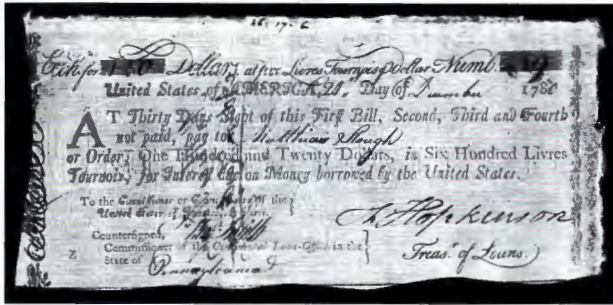 Exch. for 120 Dollars, at five Livres Tournois Dollar Numb. 19
United States of AMERICA, 20, Day of December 178
AT Thirty Days Sight of this First Bill, Second, Third and Fourth
not paid, pay to Matthias Slough
or Order, One Hundred and Twenty Dollars, in Six Hundred Livres
Tournois, for Interest due on Money borrowed by the United States.
To the Commissioner or Commissioners of the
United States of America, at Paris.
F. Hopkinson
Countersigned,
Commissioner of the Continental Loan-Office in the
State of Treasr. of Loans.
Pennsylvania